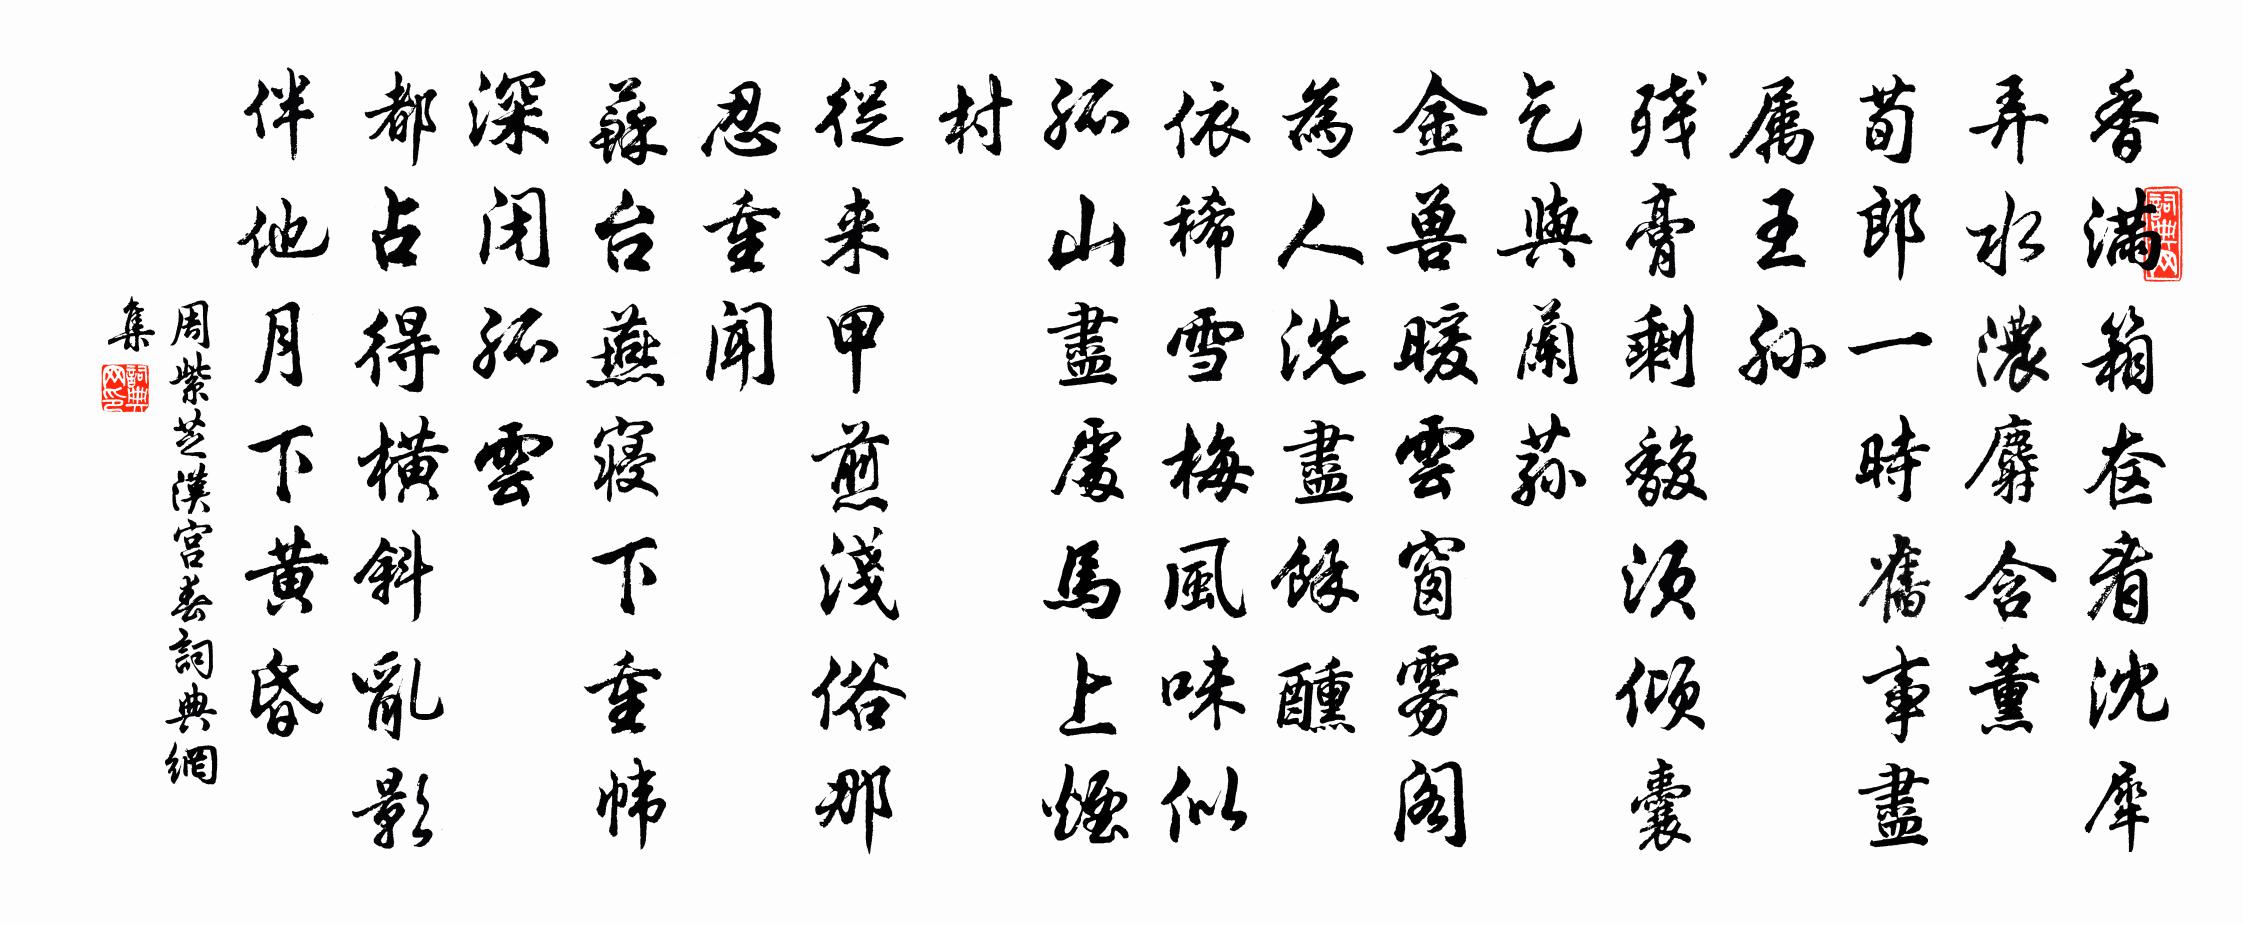 香滿箱奁看沈犀
弄水濃麝含薰
荀郎一時舊事盡
属王孙
残膏剩馥须倾囊
乞與蘭荪
金兽暖雲窗雾阁
為人洗盡餘醺
依稀雪梅風味似
孤山盡處馬上煙
村
從来甲煎淺俗那
忍重聞
蘇台燕寝下重帏
深闭孤雲
都占得橫斜亂影
伴他月下黄昏
周紫芝漢宮春詞典網
集
詞典网
詞典网印